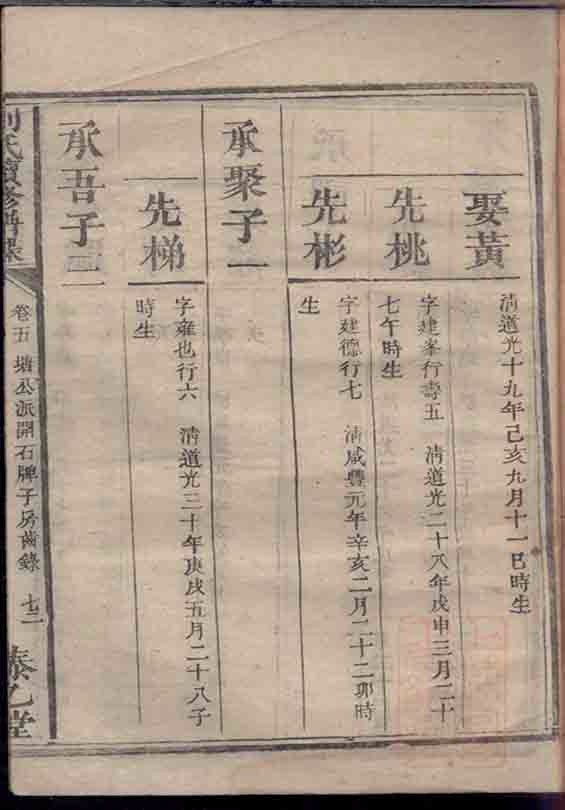 娶黃
清道光十九年己亥九月十一巳時生
先桃
字建峯行壽五 清道光二十八年戊申三月二十
七午時生
先彬
字建德行七 清咸豐元年辛亥二月二十二卯時
生
承聚子一
先梯
字雍也行六 清道光三十年庚戌五月二十八子
時生
承吾子二
劉氏續修譜錄
卷五 塘公派開石牌子房齒錄 七二
泰乙堂